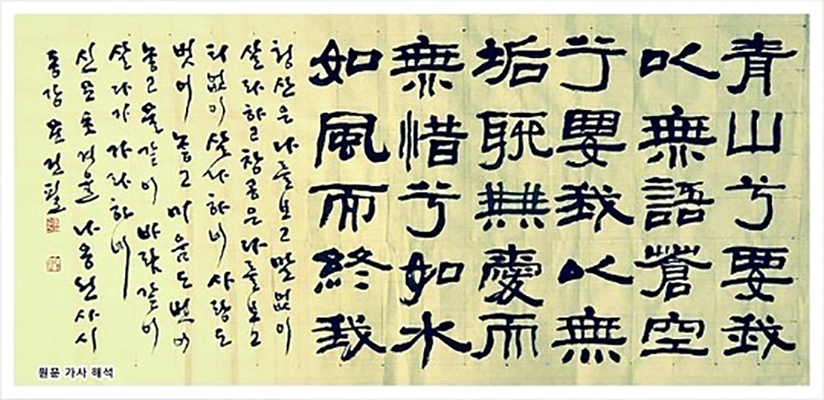 青山兮要我
以無語蒼空
兮要我以無
垢聊無愛而
無惜兮如水
如風而終我
청산은 나를 보고 말없이
살라하고 창공은 나를 보고
티없이 살라하네 사랑도
벗어 놓고 미움도 벗어
놓고 물같이 바람같이
살다가 가라하네
신묘 초겨울 나옹선사 시
원문 가사 해석